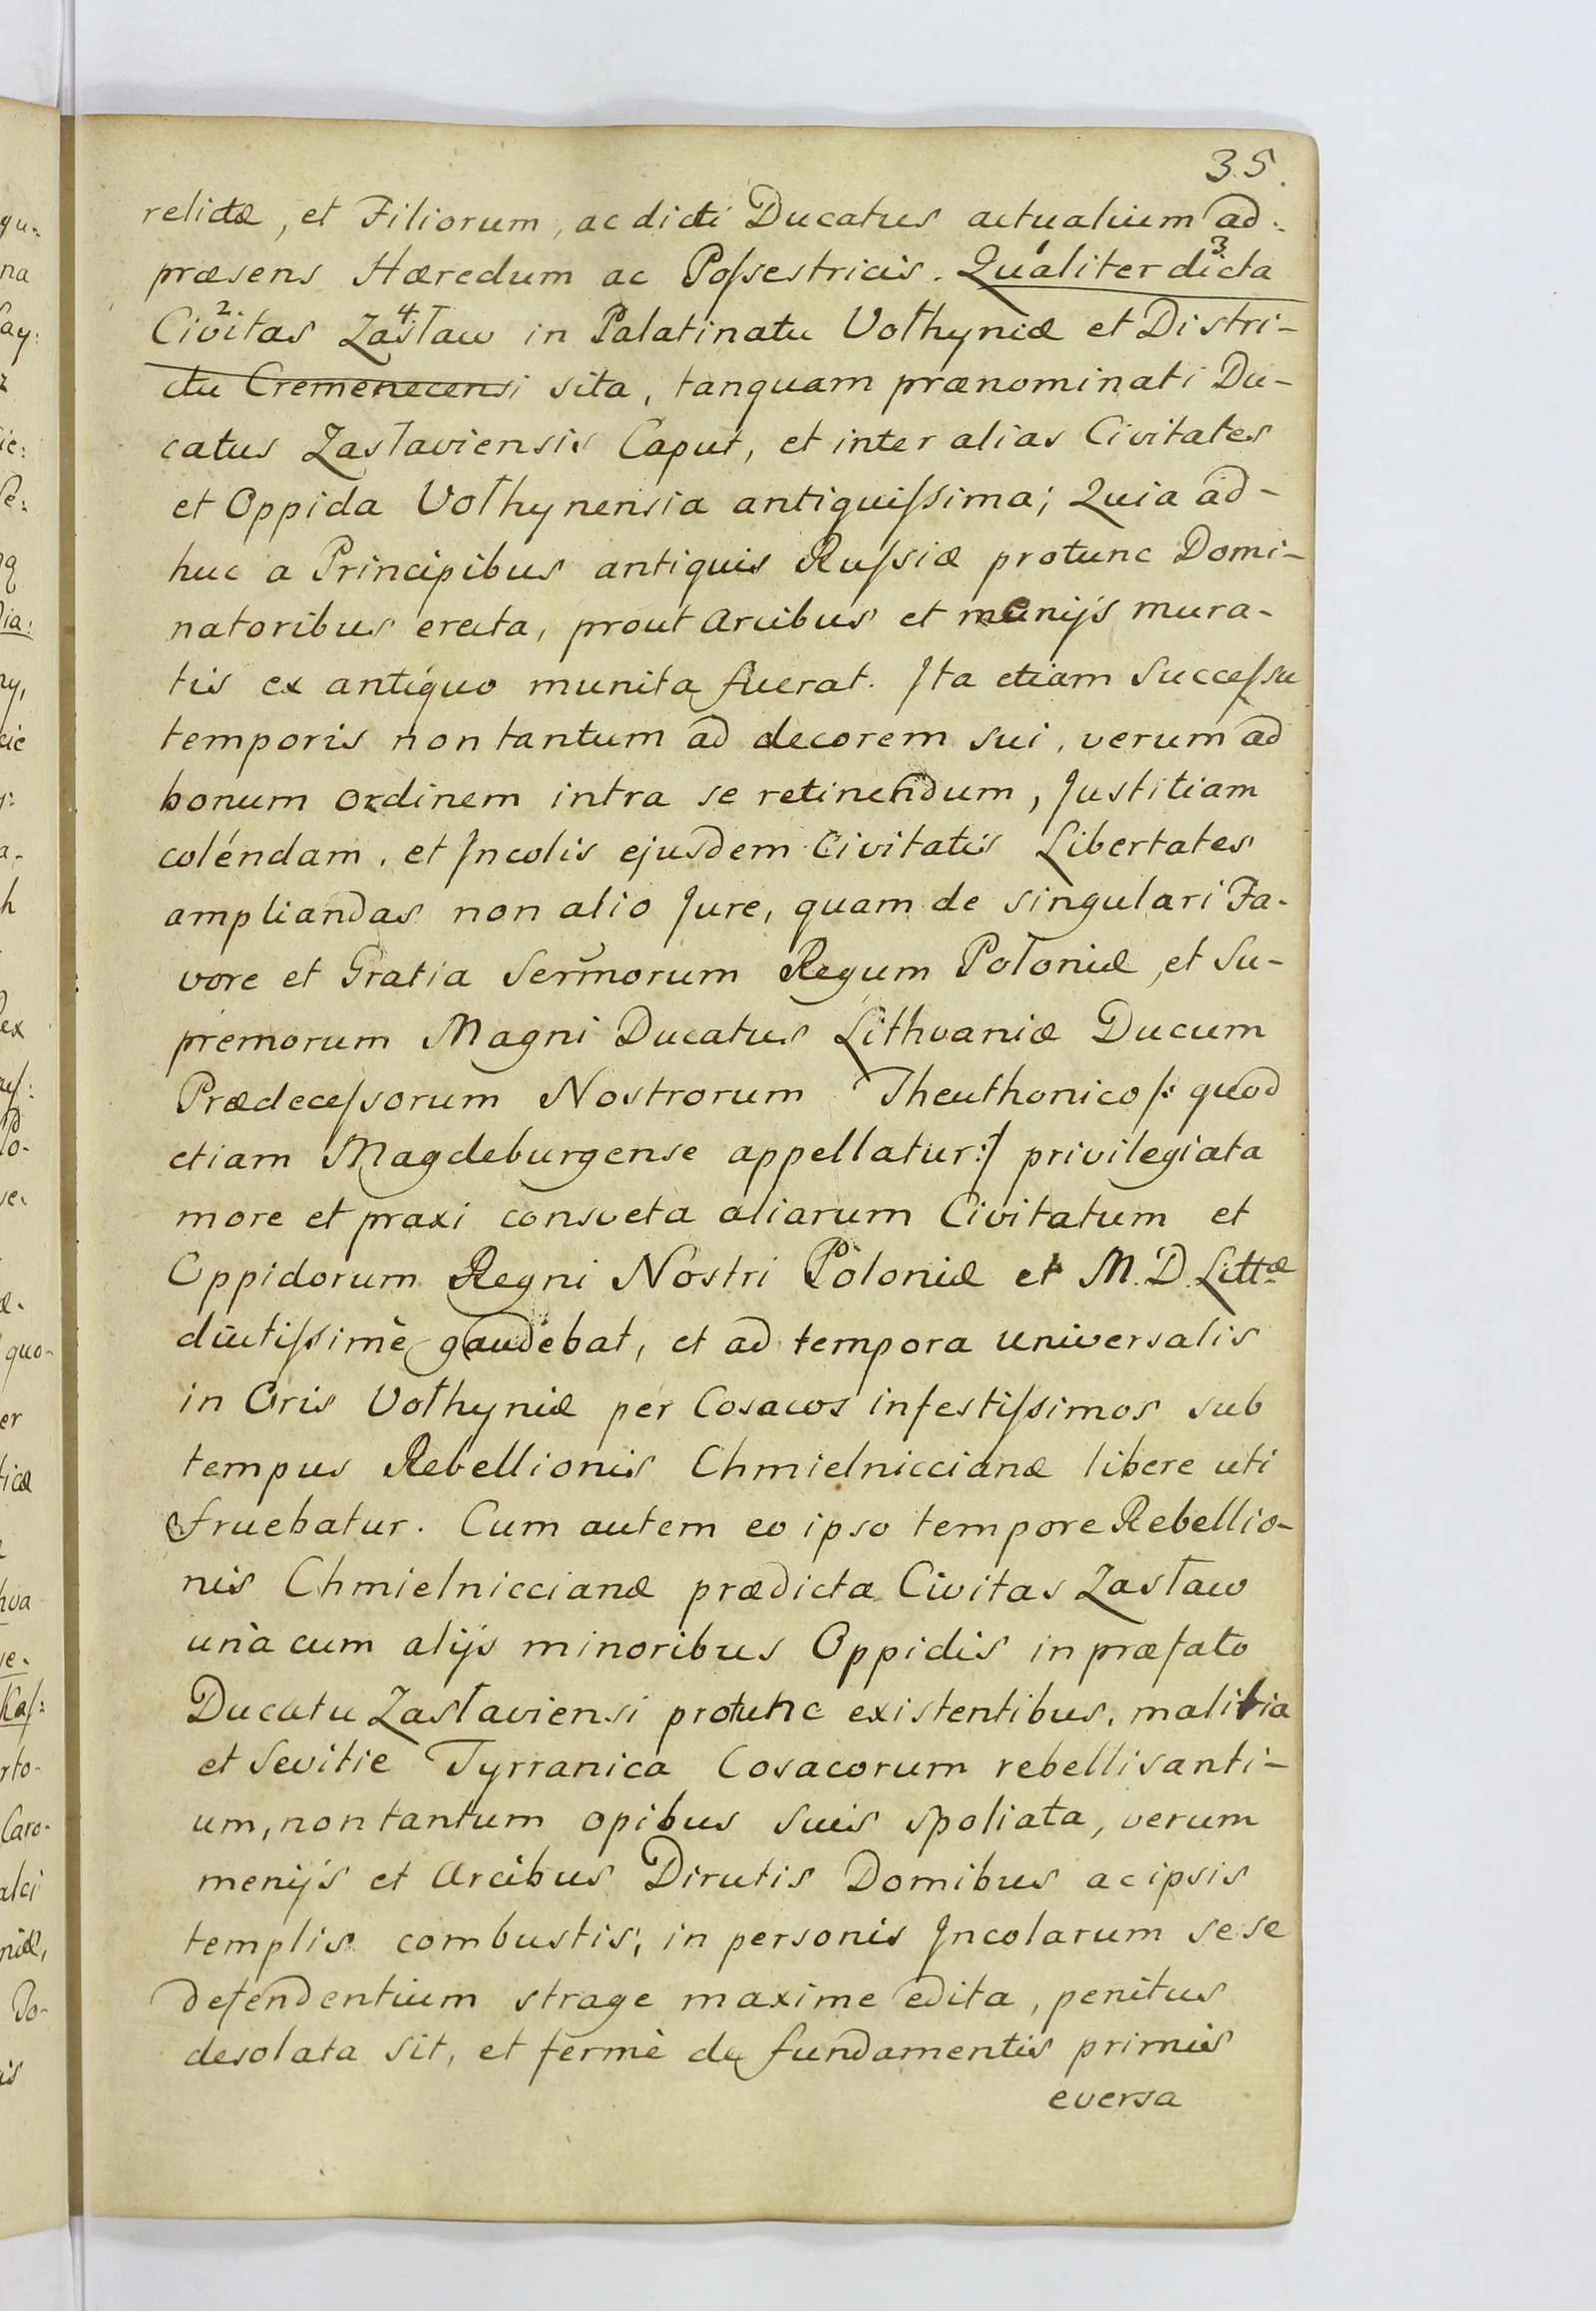 35.
relictæ, et Filiorum, ac dicti Ducatus actualium ad-
præsens Hæredum ac Poſsestricis. Qualiter dicta
Civitas Zasław in Palatinatu Vołhyniæ et Distri-
ctu Cremenecensi sita, tanquam prænominati Du-
catus Zasłaviensis Caput, et inter alias Civitates
et Oppida Vołhynensia antiquiſsima; Quia ad-
huc a Principibus antiquis Ruſsiæ protunc Domi-
natoribus erecta, prout Arcibus et menijs mura-
tis ex antiquo munita fuerat. Ita etiam Succeſsu
temporis non tantum ad decorem sui, verum ad
bonum ordinem intra se retinendum, Justitiam
coléndam, et Incolis ejusdem Civitatis Libertates
ampliandas non alio Jure, quam de singulari Fa-
vore et Gratia Sermorum Regum Poloniæ, et Su-
premorum Magni Ducatus Lithvaniæ Ducum
Prædeceſsorum Nostrorum Theuthonico /: quod
etiam Magdeburgense appellatur :/ privilegiata
more et praxi consveta aliarum Civitatum et
Oppidorum Regni Nostri Poloniæ et M. D. Littæ
diutiſsimè gaudebat, et ad tempora universalis
in Oris Vołhyniæ per Cosacos infestiſsimos sub
tempus Rebellionis Chmielniccianæ libere uti
fruebatur. Cum autem eo ipso tempore Rebellio-
nis Chmielniccianæ prædicta Civitas Zasław
unà cum alijs minoribus Oppidis in præfato
Ducatu Zasłaviensi protunc existentibus, malitia
et Sevitie Tyrranica Cosacorum rebellisanti-
um, non tantum opibus suis spoliata, verum
menijs et Arcibus Dirutis Domibus ac ipsis
templis combustis, in personis Incolarum sese
defendentium strage maxime edita, penitus
desolata sit, et fermè de fundamentis primis
eversa